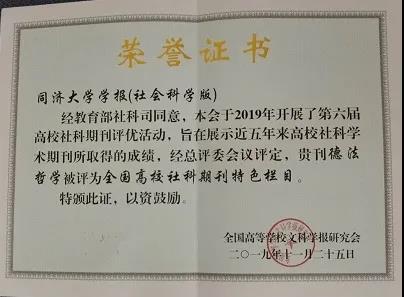 荣誉证书
同济大学学报(社会科学版)
经教育部社科司同意，本会于2019年开展了第六届
高校社科期刊评优活动，旨在展示近五年来高校社科学
术期刊所取得的成绩，经总评委会议评定，贵刊德法
哲学被评为全国高校社科期刊特色栏目。
特颁此证，以资鼓励。
全国高等学校文科学报研究会
二〇一九年十一月二十五日